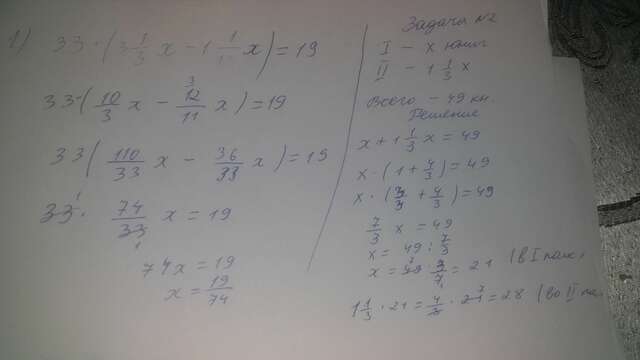 1) 33·(3 1/3 x − 1 1/11 x) = 19
33·(10/3 x − 12/11 x) = 19
33(110/33 x − 36/33 x) = 19
33 · 74/33 x = 19
74x = 19
x = 19/74
Задача №2
I − x книг
II − 1 1/3 x
Всего − 49 кн.
Решение
x + 1 1/3 x = 49
x (1 + 4/3) = 49
x · (3/3 + 4/3) = 49
7/3 x = 49
x = 49 : 7/3
x = 49 · 3/7 = 21 (в I
1 1/3 · 21 = 4/3 · 21 = 28 (во II